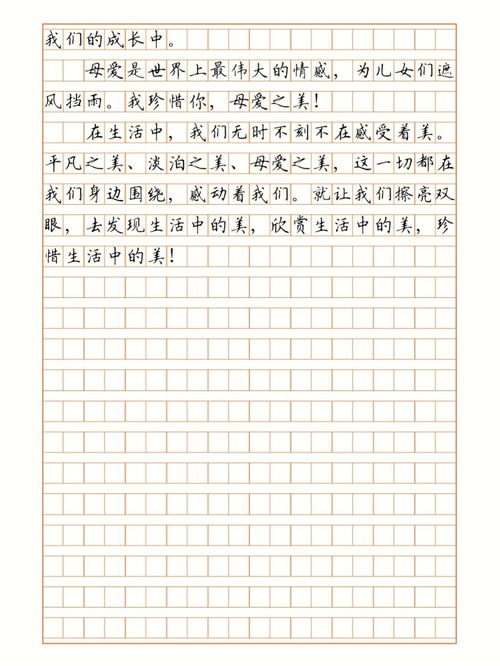 我们的成长中。
母爱是世界上最伟大的情感，为儿女们遮
风挡雨。我珍惜你，母爱之美！
在生活中，我们无时不刻不在感受着美。
平凡之美、淡泊之美、母爱之美，这一切都在
我们身边围绕，感动着我们。就让我们擦亮双
眼，去发现生活中的美，欣赏生活中的美，珍
惜生活中的美！